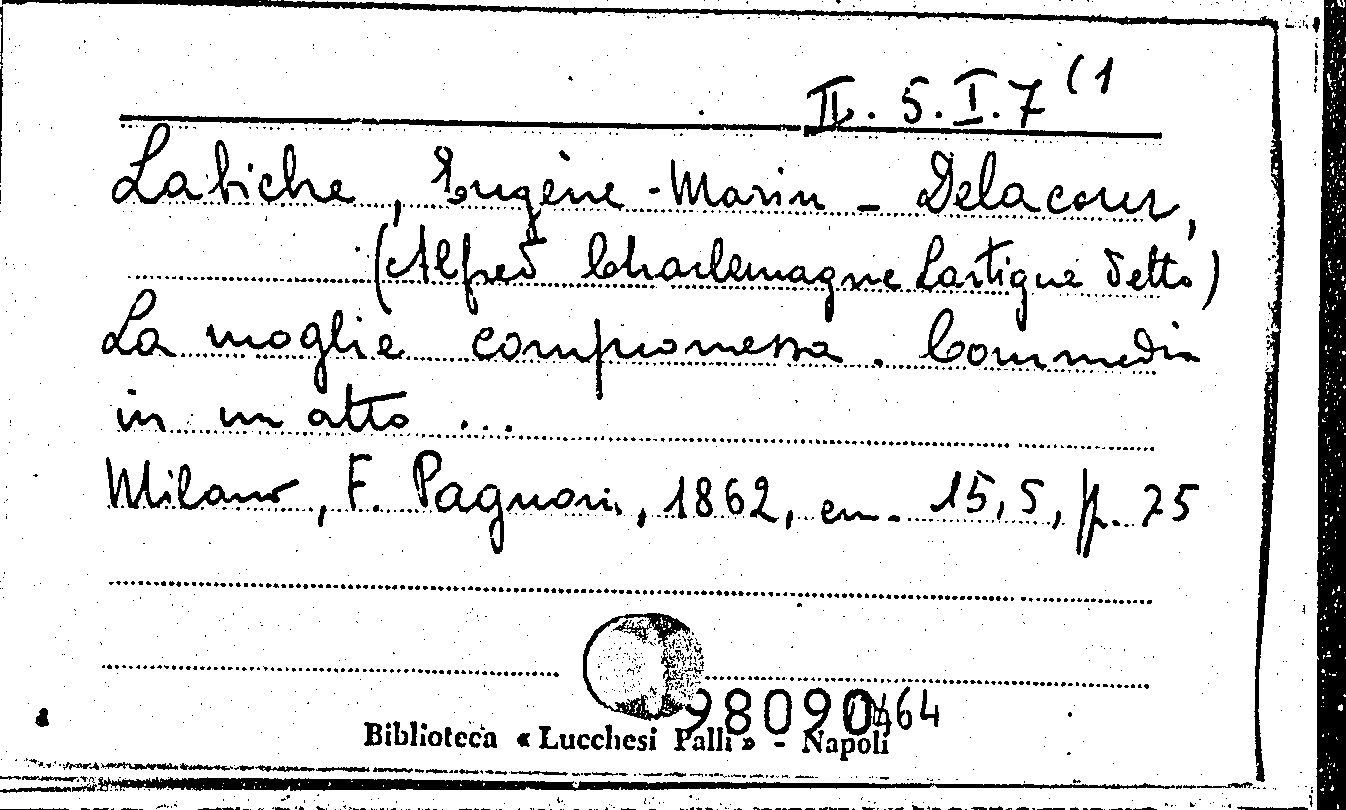 II. 5. I. 7 (1
Labiche, Eugène-Marin - Delacour,
(Alfred Charlemagne Lartigue detto)
La moglie compromessa. Commedia
in un atto ...
Milano, F. Pagnoni, 1862, cm. 15,5, p. 75
98090
Biblioteca « Lucchesi Palli » - Napoli